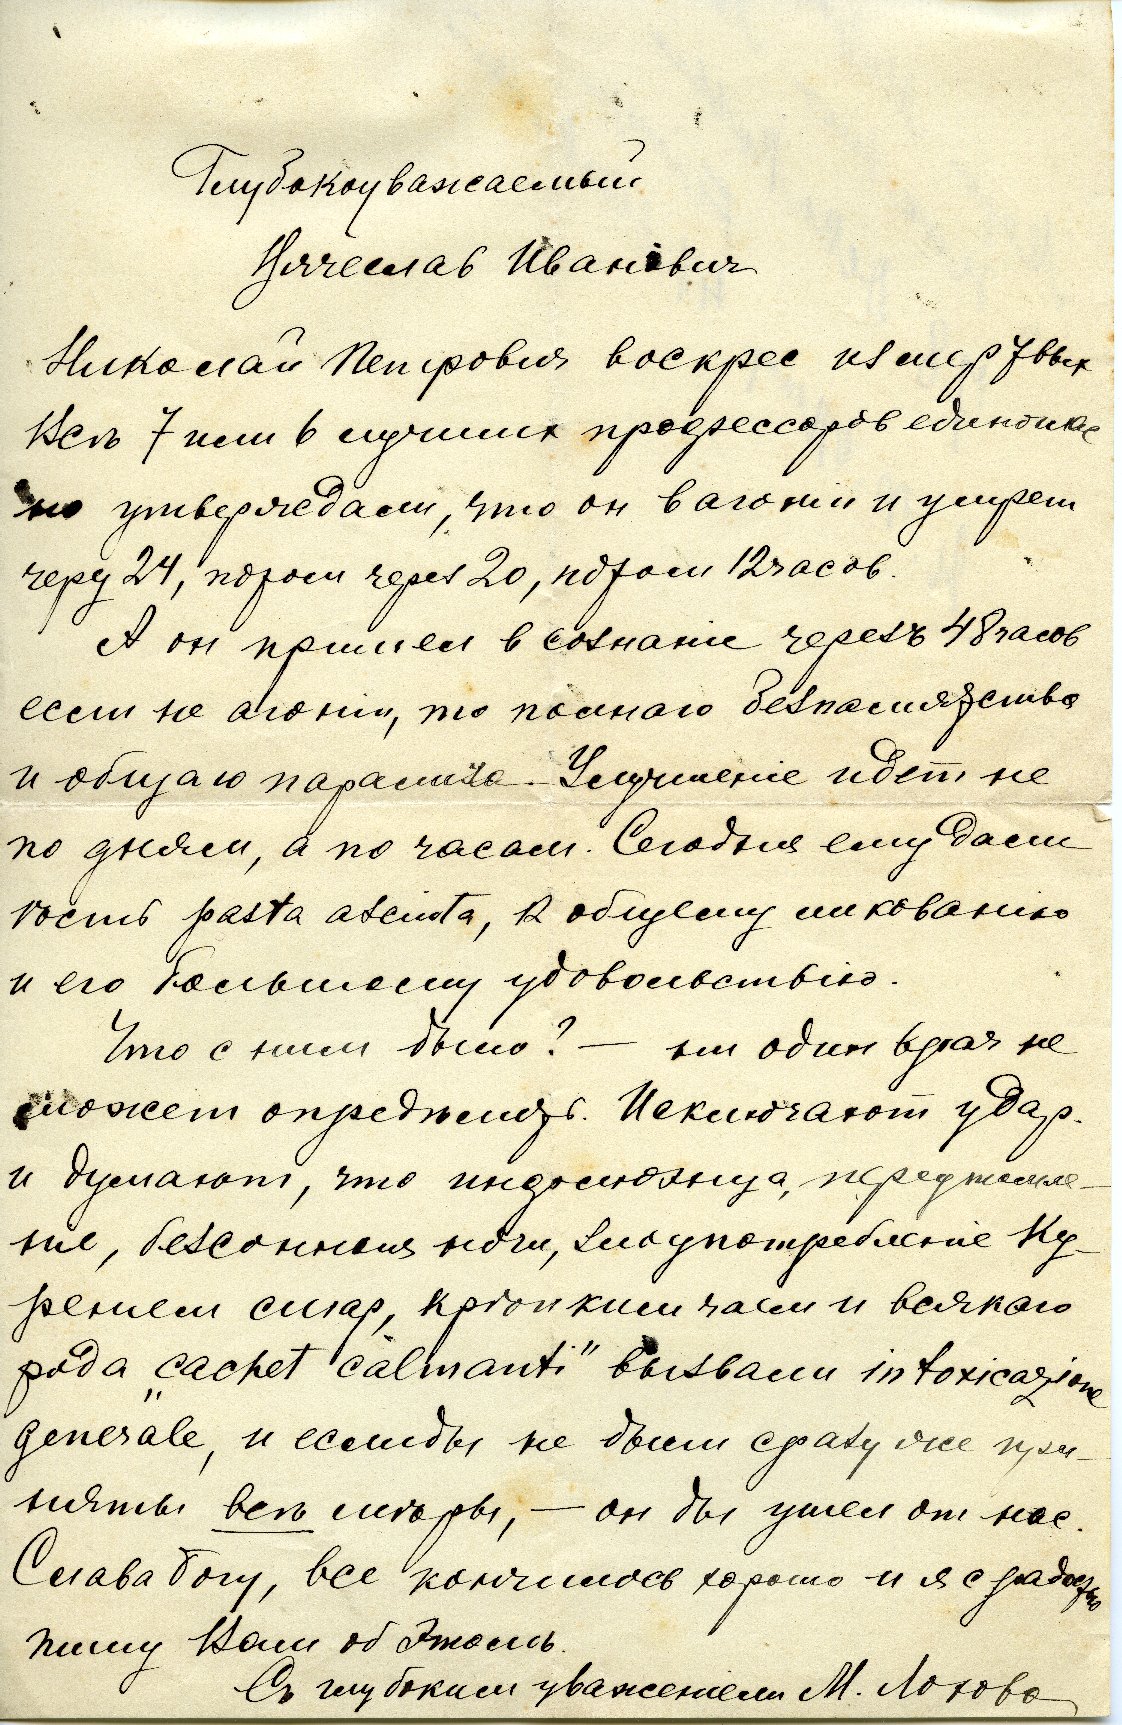 Глубокоуважаемый
Вячеслав Иванович
Николай Петрович воскрес из мертвых
Всѣ 7 или 6 лучших профессоров единоглас
но утверждали, что он в агоніи и умрет
через 24, потом через 20, потом 12 часов.
А он пришел в сознаніе черезъ 48 часов
если не агоніи, то полнаго безпамятства
и общаго паралича. Улучшеніе идет не
по дням, а по часам. Сегодня ему дали
есть pasta asciuta, к общему ликованію
и его большому удовольствію.
Что с ним было? — ни один врач не
может опредѣлить. Исключают удар.
и думают, что инфлюэнца, переутомле-
ніе, безсонныя ночи, злоупотребленіе ку-
реніем сигар, крѣпким чаем и всякаго
рода „cachet calmanti" вызвали intoxicazione
generale, и еслибы не были сразу же при-
няты всѣ мѣры, — он бы ушел от нас.
Слава Богу, все кончилось хорошо и я с радостью
пишу Вам об этомъ.
Съ глубоким уваженіем М. Лохова